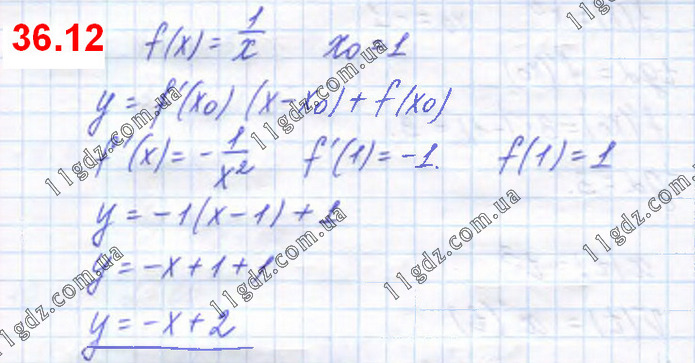 36.12
f(x) = 1/x   x₀ = 1
y = f'(x₀) (x - x₀) + f(x₀)
f'(x) = - 1/x²   f'(1) = -1.   f(1) = 1
y = -1(x - 1) + 1
y = -x + 1 + 1
y = -x + 2
11gdz.com.ua
11gdz.com.ua
11gdz.com.ua
11gdz.com.ua
11gdz.com.ua
11gdz.com.ua
11gdz.com.ua
11gdz.com.ua